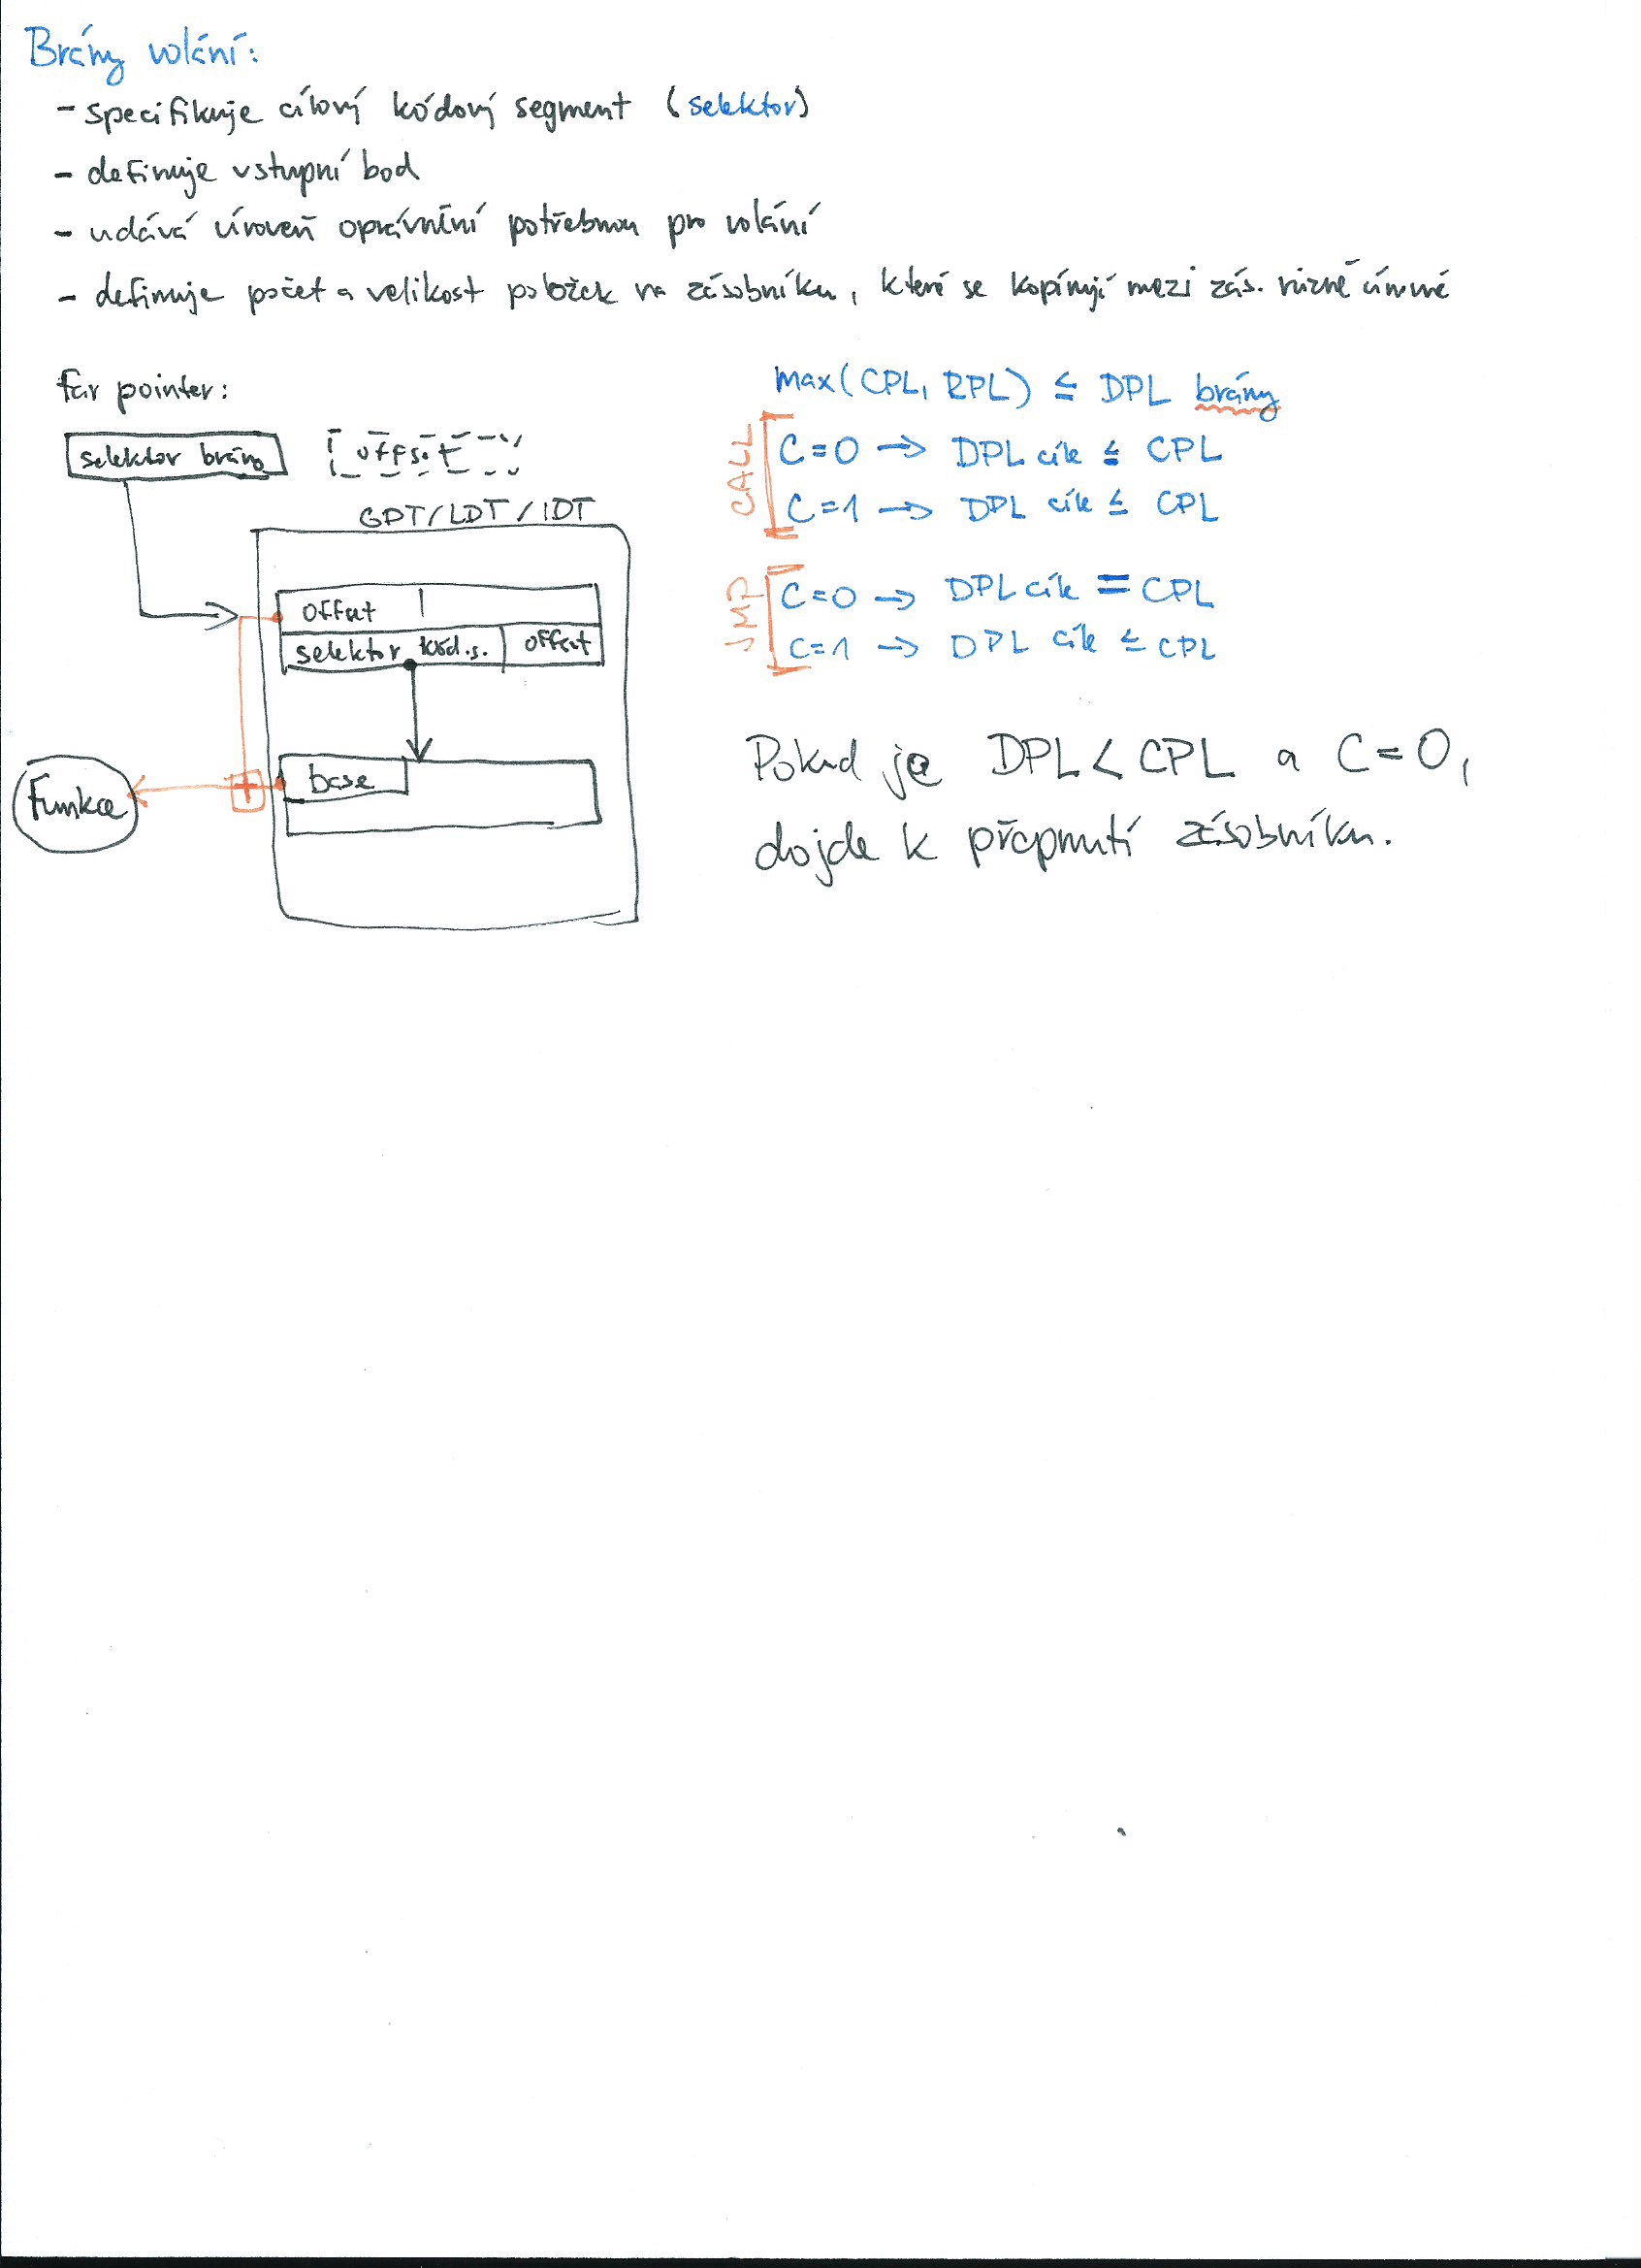 Brány volání:
- specifikuje cílový kódový segment (selektor)
- definuje vstupní bod
- udává úroveň oprávnění potřebnou pro volání
- definuje počet a velikost položek na zásobníku, které se kopírují mezi zás. různé úrovně
far pointer:
selektor brány
offset
GDT/LDT/IDT
offset
selektor kód.s.
offset
base
+
Funkce
max(CPL, RPL) ≤ DPL brány
CALL
C=0 → DPL cíle ≤ CPL
C=1 → DPL cíle ≤ CPL
JMP
C=0 → DPL cíle = CPL
C=1 → DPL cíle ≤ CPL
Pokud je DPL < CPL a C=0,
dojde k přepnutí zásobníku.